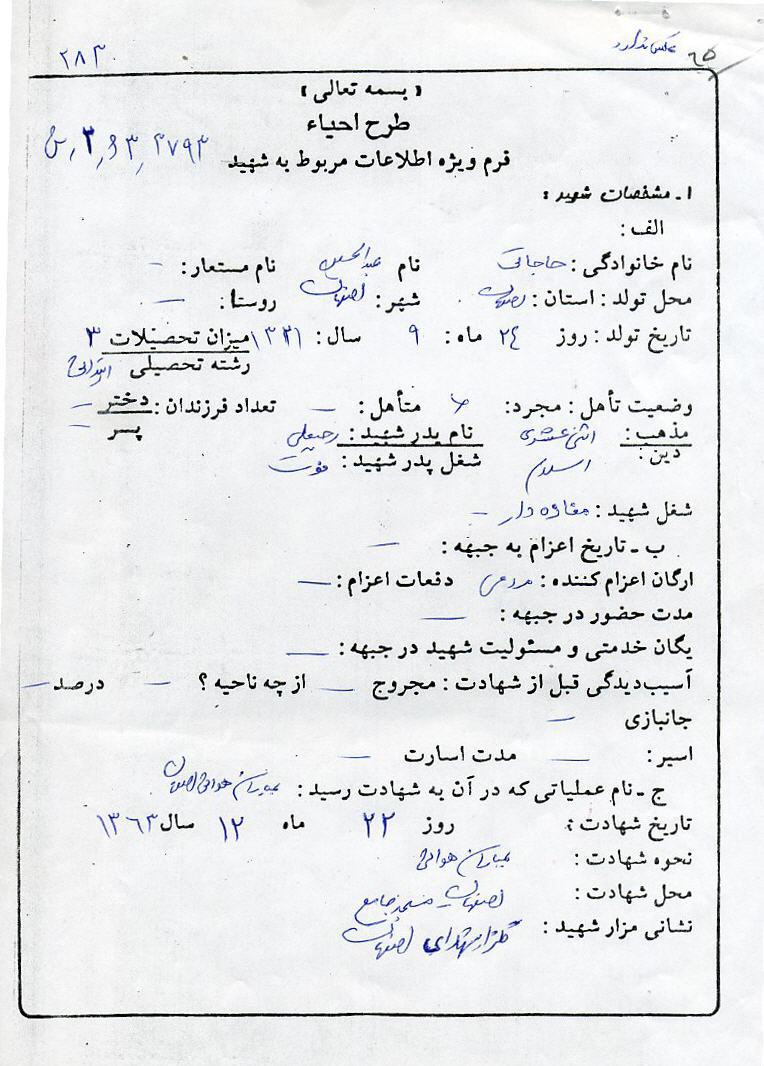 عکس ندارد
۲۸۳
« بسمه تعالی »
طرح احیاء
فرم ویژه اطلاعات مربوط به شهید
۱ـ مشخصات شهید :
الف :
نام خانوادگی : حاجاتی نام عبدالحسین نام مستعار : -
محل تولد : استان : اصفهان شهر : اصفهان روستا : —
تاریخ تولد : روز ۲٤ ماه : ۹ سال : ۱۳۳۱ میزان تحصیلات ۳
رشته تحصیلی ابتدائی
وضعیت تأهل : مجرد : متأهل : — تعداد فرزندان : دختر —
پسر —
مذهب : اثنی عشری نام پدر شهید : رجبعلی
دین : اسلام شغل پدر شهید : فوت
شغل شهید : مغازه دار -
ب ـ تاریخ اعزام به جبهه : —
ارگان اعزام کننده : مردمی دفعات اعزام : —
مدت حضور در جبهه : —
یگان خدمتی و مسئولیت شهید در جبهه : —
آسیب‌دیدگی قبل از شهادت : مجروح — از چه ناحیه ؟ — درصد —
جانبازی —
اسیر : — مدت اسارت —
ج ـ نام عملیاتی که در آن به شهادت رسید : بمباران هوائی اصفهان
تاریخ شهادت : روز ۲۲ ماه ۱۲ سال ۱۳٦۳
نحوه شهادت : بمباران هوائی
محل شهادت : اصفهان - مسجد جامع
نشانی مزار شهید : گلزار شهدای اصفهان